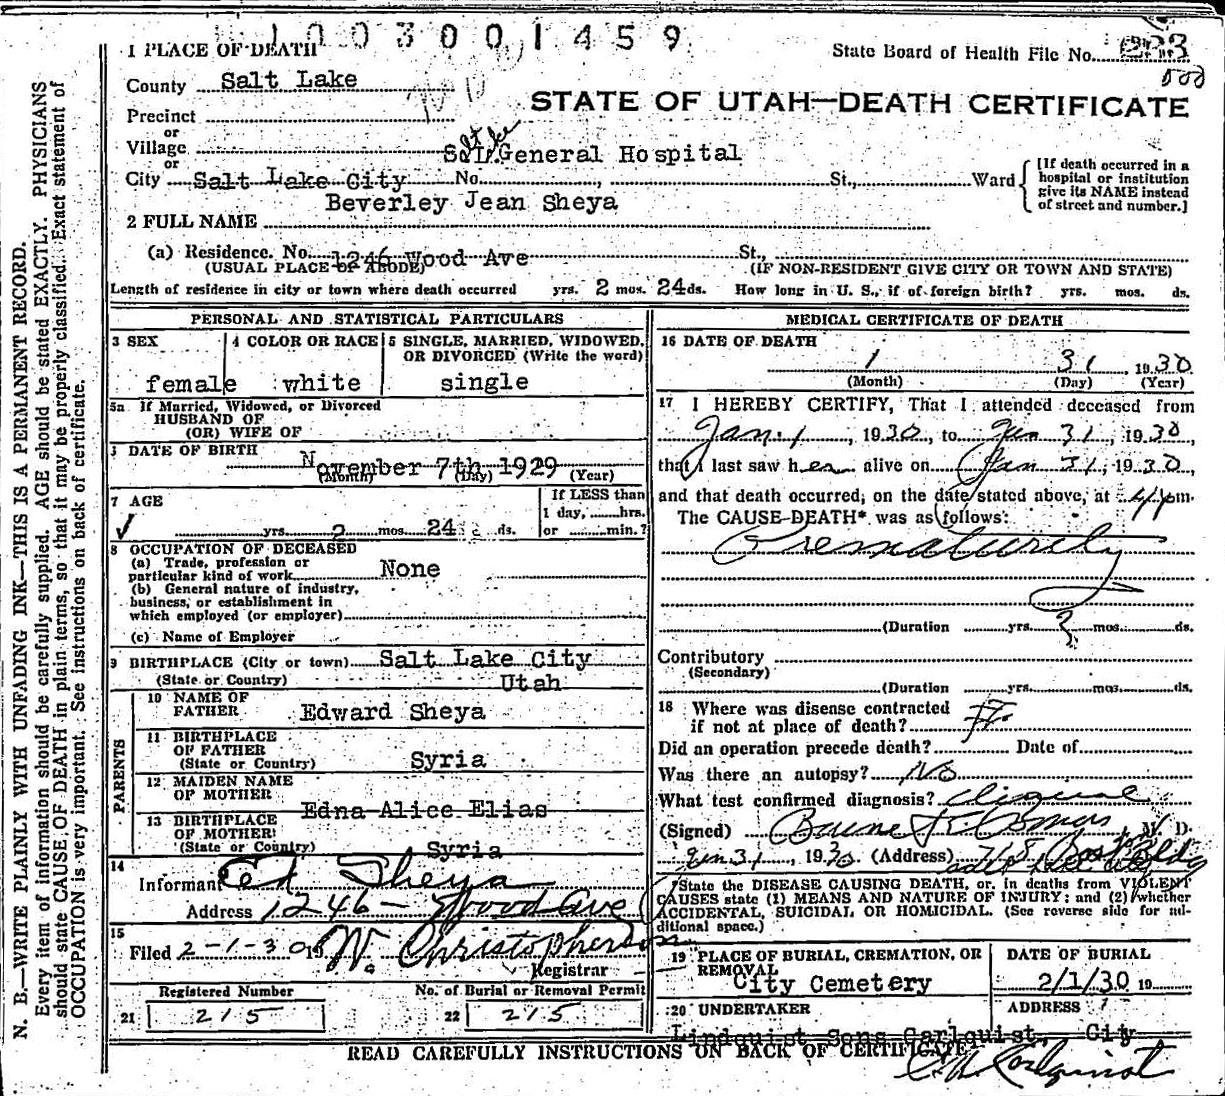 1003001459
1 PLACE OF DEATH
State Board of Health File No.
County Salt Lake
STATE OF UTAH—DEATH CERTIFICATE
Precinct
or
Village
or
General Hospital
City Salt Lake City No. , St., Ward
[If death occurred in a
hospital or institution
give its NAME instead
of street and number.]
Beverley Jean Sheya
2 FULL NAME
(a) Residence. No. 1246 Wood Ave St.,
(USUAL PLACE OF ABODE) (IF NON-RESIDENT GIVE CITY OR TOWN AND STATE)
Length of residence in city or town where death occurred yrs. 2 mos. 24 ds. How long in U. S., if of foreign birth? yrs. mos. ds.
PERSONAL AND STATISTICAL PARTICULARS
3 SEX
female
4 COLOR OR RACE
white
5 SINGLE, MARRIED, WIDOWED,
OR DIVORCED (Write the word)
single
5a If Married, Widowed, or Divorced
HUSBAND OF
(OR) WIFE OF
DATE OF BIRTH
November 7th, 1929
(Month) (Day) (Year)
7 AGE
yrs. 2 mos. 24 ds.
If LESS than
1 day, hrs.
or min.?
8 OCCUPATION OF DECEASED
(a) Trade, profession or
particular kind of work None
(b) General nature of industry,
business, or establishment in
which employed (or employer)
(c) Name of Employer
9 BIRTHPLACE (City or town) Salt Lake City
(State or Country) Utah
PARENTS
10 NAME OF
FATHER Edward Sheya
11 BIRTHPLACE
OF FATHER
(State or Country) Syria
12 MAIDEN NAME
OF MOTHER
Edna Alice Elias
13 BIRTHPLACE
OF MOTHER
(State or Country) Syria
14
Informant Ed Sheya
Address 1246 - Wood Ave
15
Filed 2-1-30 19 W. Christopherson
Registrar
Registered Number No. of Burial or Removal Permit
21 215 22 215
MEDICAL CERTIFICATE OF DEATH
16 DATE OF DEATH
1 31, 1930
(Month) (Day) (Year)
17 I HEREBY CERTIFY, That I attended deceased from
Jan. 1, 1930, to Jan 31, 1930,
that I last saw her alive on Jan 31, 1930,
and that death occurred, on the date stated above, at 4 pm.
The CAUSE DEATH* was as follows:
Prematurity
(Duration yrs. mos. ds.
Contributory
(Secondary)
(Duration yrs. mos. ds.
18 Where was disease contracted
if not at place of death?
Did an operation precede death? Date of
Was there an autopsy? No
What test confirmed diagnosis? Clinical
(Signed) M. D.
Jan 31, 1930. (Address) 718 Boston Bldg
*State the DISEASE CAUSING DEATH, or, in deaths from VIOLENT
CAUSES state (1) MEANS AND NATURE OF INJURY; and (2) whether
ACCIDENTAL, SUICIDAL OR HOMICIDAL. (See reverse side for additional space.)
19 PLACE OF BURIAL, CREMATION, OR
REMOVAL
City Cemetery
DATE OF BURIAL
2/1/30 19
20 UNDERTAKER ADDRESS
Lindquist Sons Carlquist, City
READ CAREFULLY INSTRUCTIONS ON BACK OF CERTIFICATE
N. B.—WRITE PLAINLY WITH UNFADING INK—THIS IS A PERMANENT RECORD.
Every item of information should be carefully supplied. AGE should be stated EXACTLY. PHYSICIANS
should state CAUSE OF DEATH in plain terms, so that it may be properly classified. Exact statement of
OCCUPATION is very important. See instructions on back of certificate.